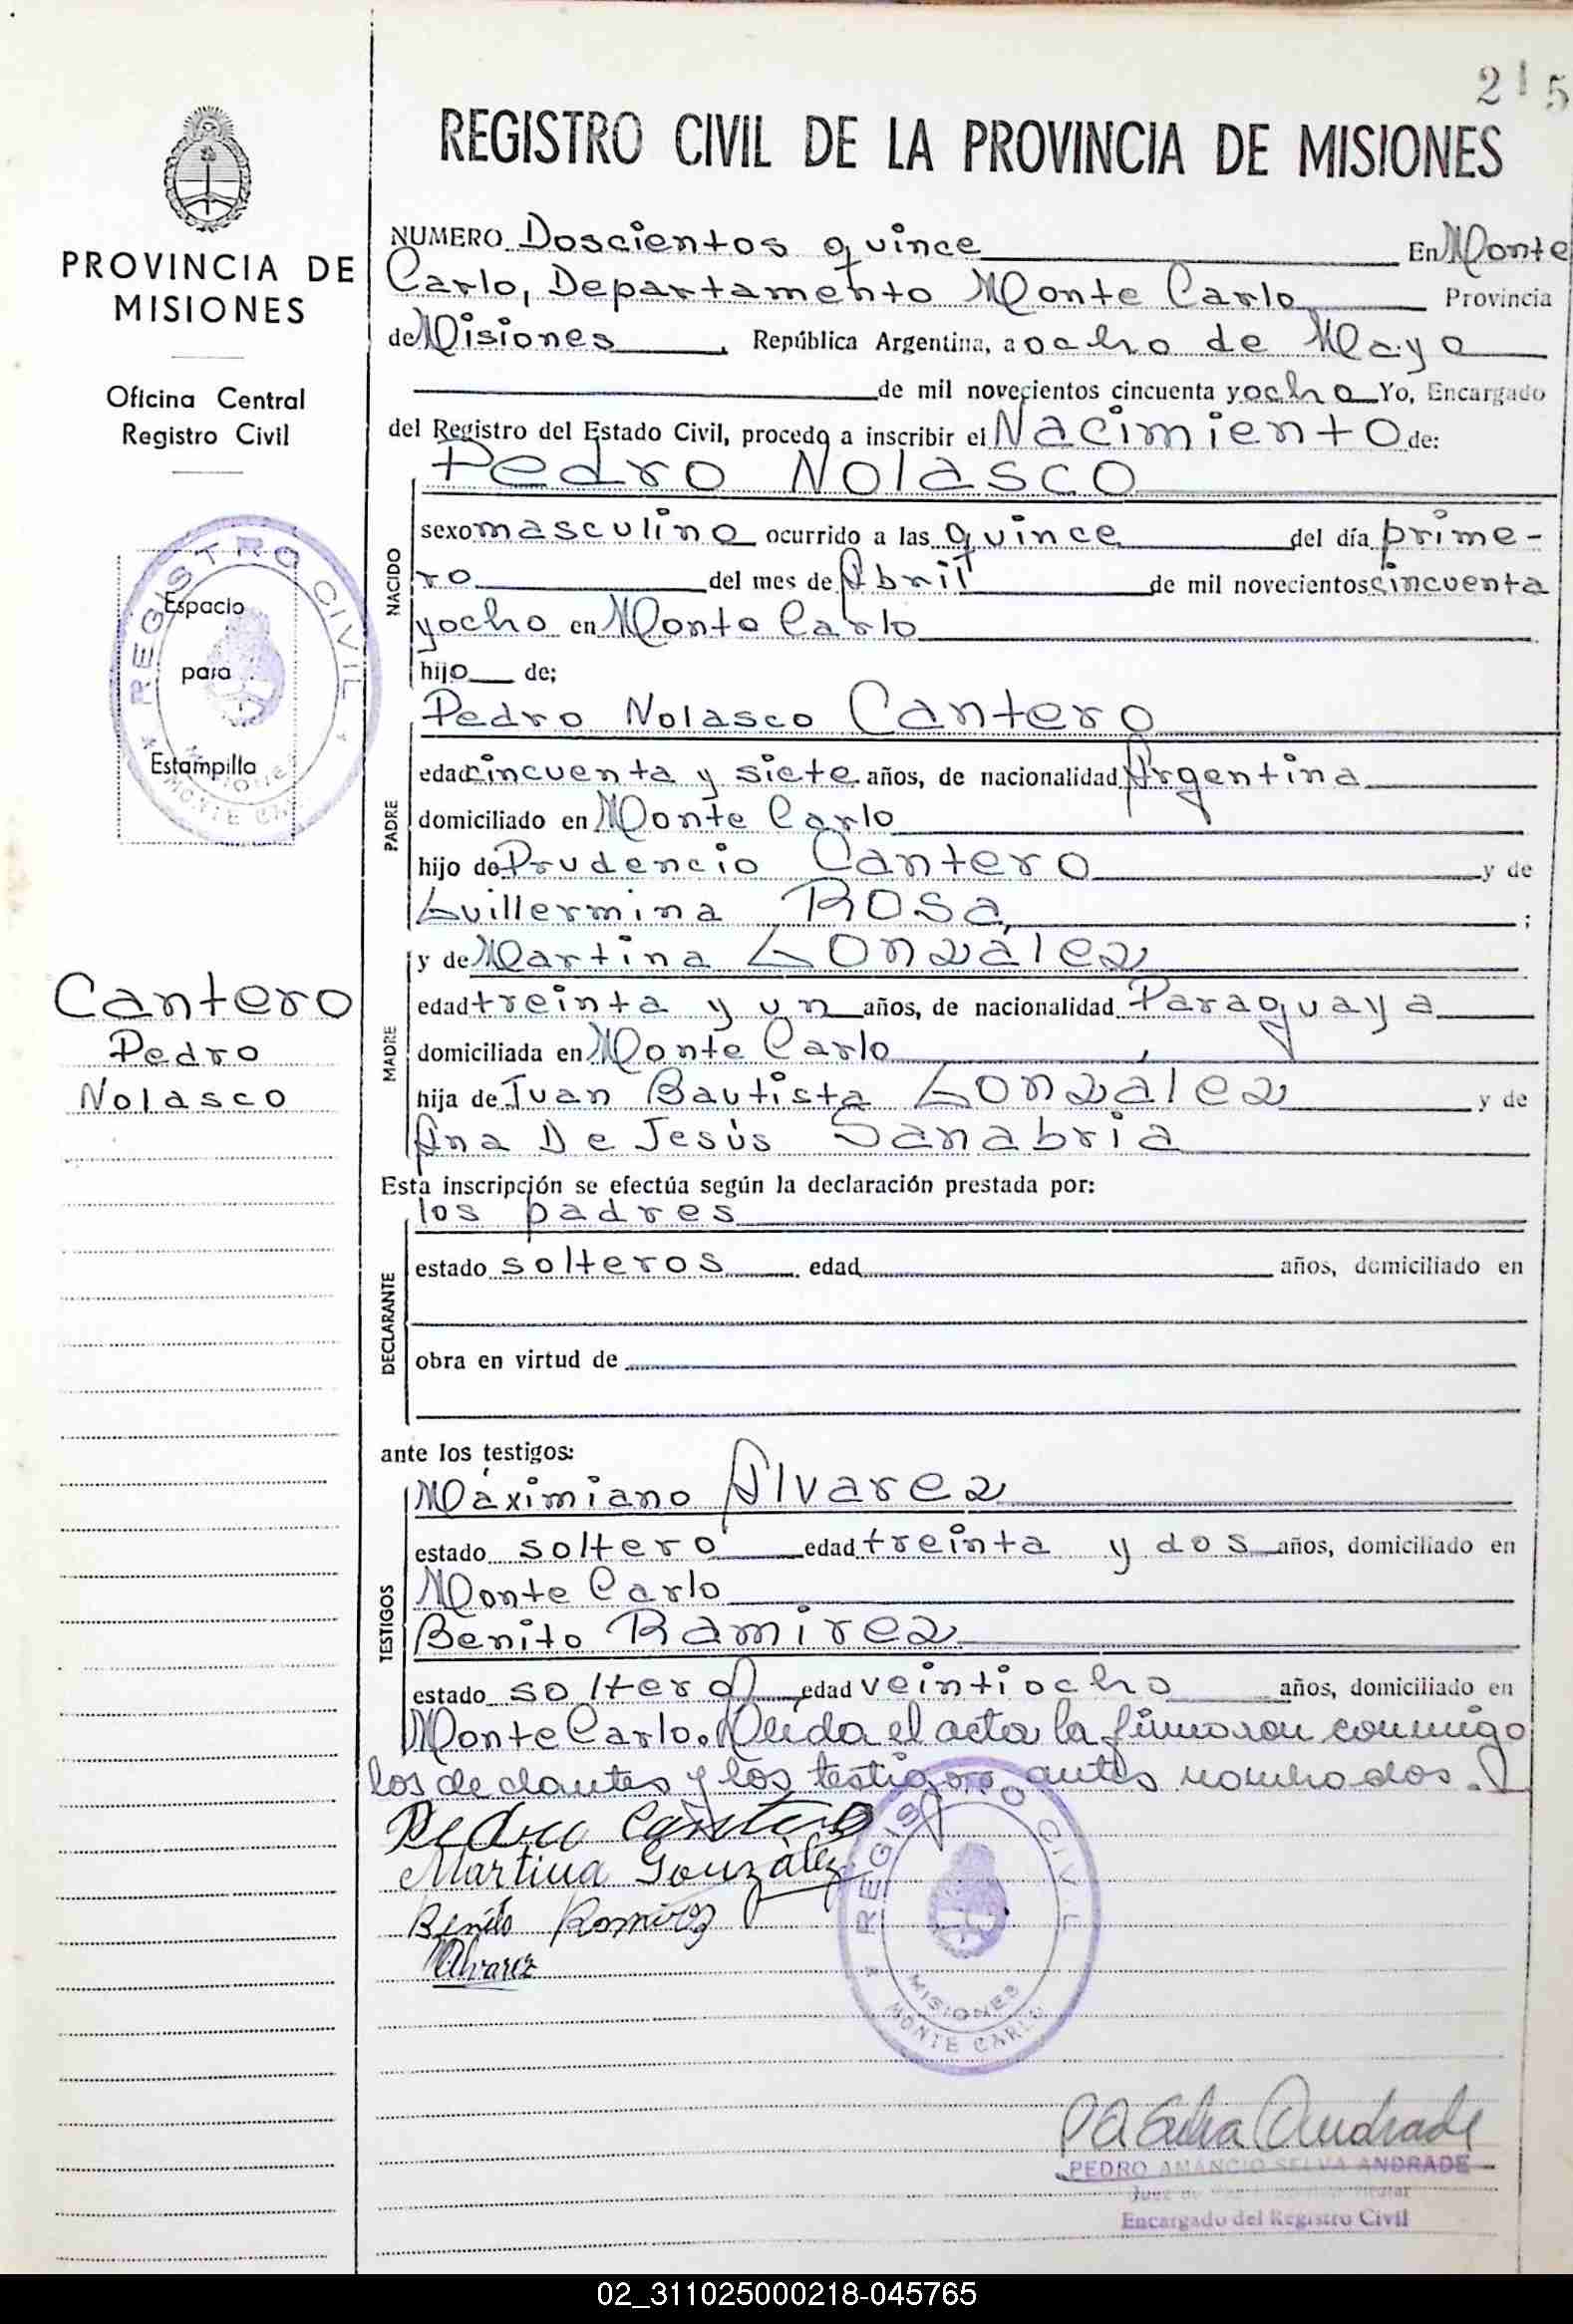 215
REGISTRO CIVIL DE LA PROVINCIA DE MISIONES
PROVINCIA DE
MISIONES
Oficina Central
Registro Civil
REGISTRO CIVIL
MISIONES
MONTE CARLO
Espacio
para
Estampilla
Cantero
Pedro
Nolasco
NUMERO Doscientos quince En Monte
Carlo, Departamento Monte Carlo Provincia
de Misiones, República Argentina, a ocho de Mayo
de mil novecientos cincuenta y ocho Yo, Encargado
del Registro del Estado Civil, procedo a inscribir el Nacimiento de:
Pedro Nolasco
NACIDO
sexo masculino ocurrido a las quince del día prime-
ro del mes de Abril de mil novecientos cincuenta
yocho en Monte Carlo
hijo de;
Pedro Nolasco Cantero
PADRE
edad cincuenta y siete años, de nacionalidad Argentina
domiciliado en Monte Carlo
hijo de Prudencio Cantero y de
Guillermina Rosa ;
y de Martina González
MADRE
edad treinta y un años, de nacionalidad Paraguaya
domiciliada en Monte Carlo
hija de Juan Bautista González y de
Ana De Jesús Sanabria
Esta inscripción se efectúa según la declaración prestada por:
los padres
DECLARANTE
estado solteros edad años, domiciliado en
obra en virtud de
ante los testigos:
Máximiano Alvarez
TESTIGOS
estado soltero edad treinta y dos años, domiciliado en
Monte Carlo
Benito Ramirez
estado soltero edad veintiocho años, domiciliado en
Monte Carlo. Leída el acta la firmaron conmigo
los declantes y los testigos antes nombrados.
Pedro Cantero
Martina González
Benito Ramirez
Alvarez
REGISTRO CIVIL
MISIONES
MONTE CARLO
PA Selva Andrade
PEDRO AMANCIO SELVA ANDRADE
Juez de
Encargado del Registro Civil
02_311025000218-045765